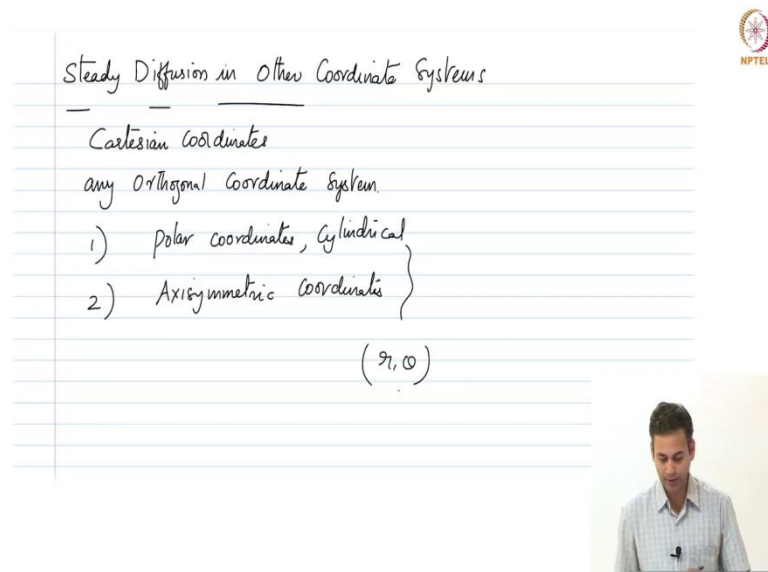 Steady Diffusion in Other Coordinate Systems
Cartesian Coordinates
any Orthogonal Coordinate System.
1) Polar coordinates, Cylindrical
2) Axisymmetric coordinates
(r, θ)
NPTEL